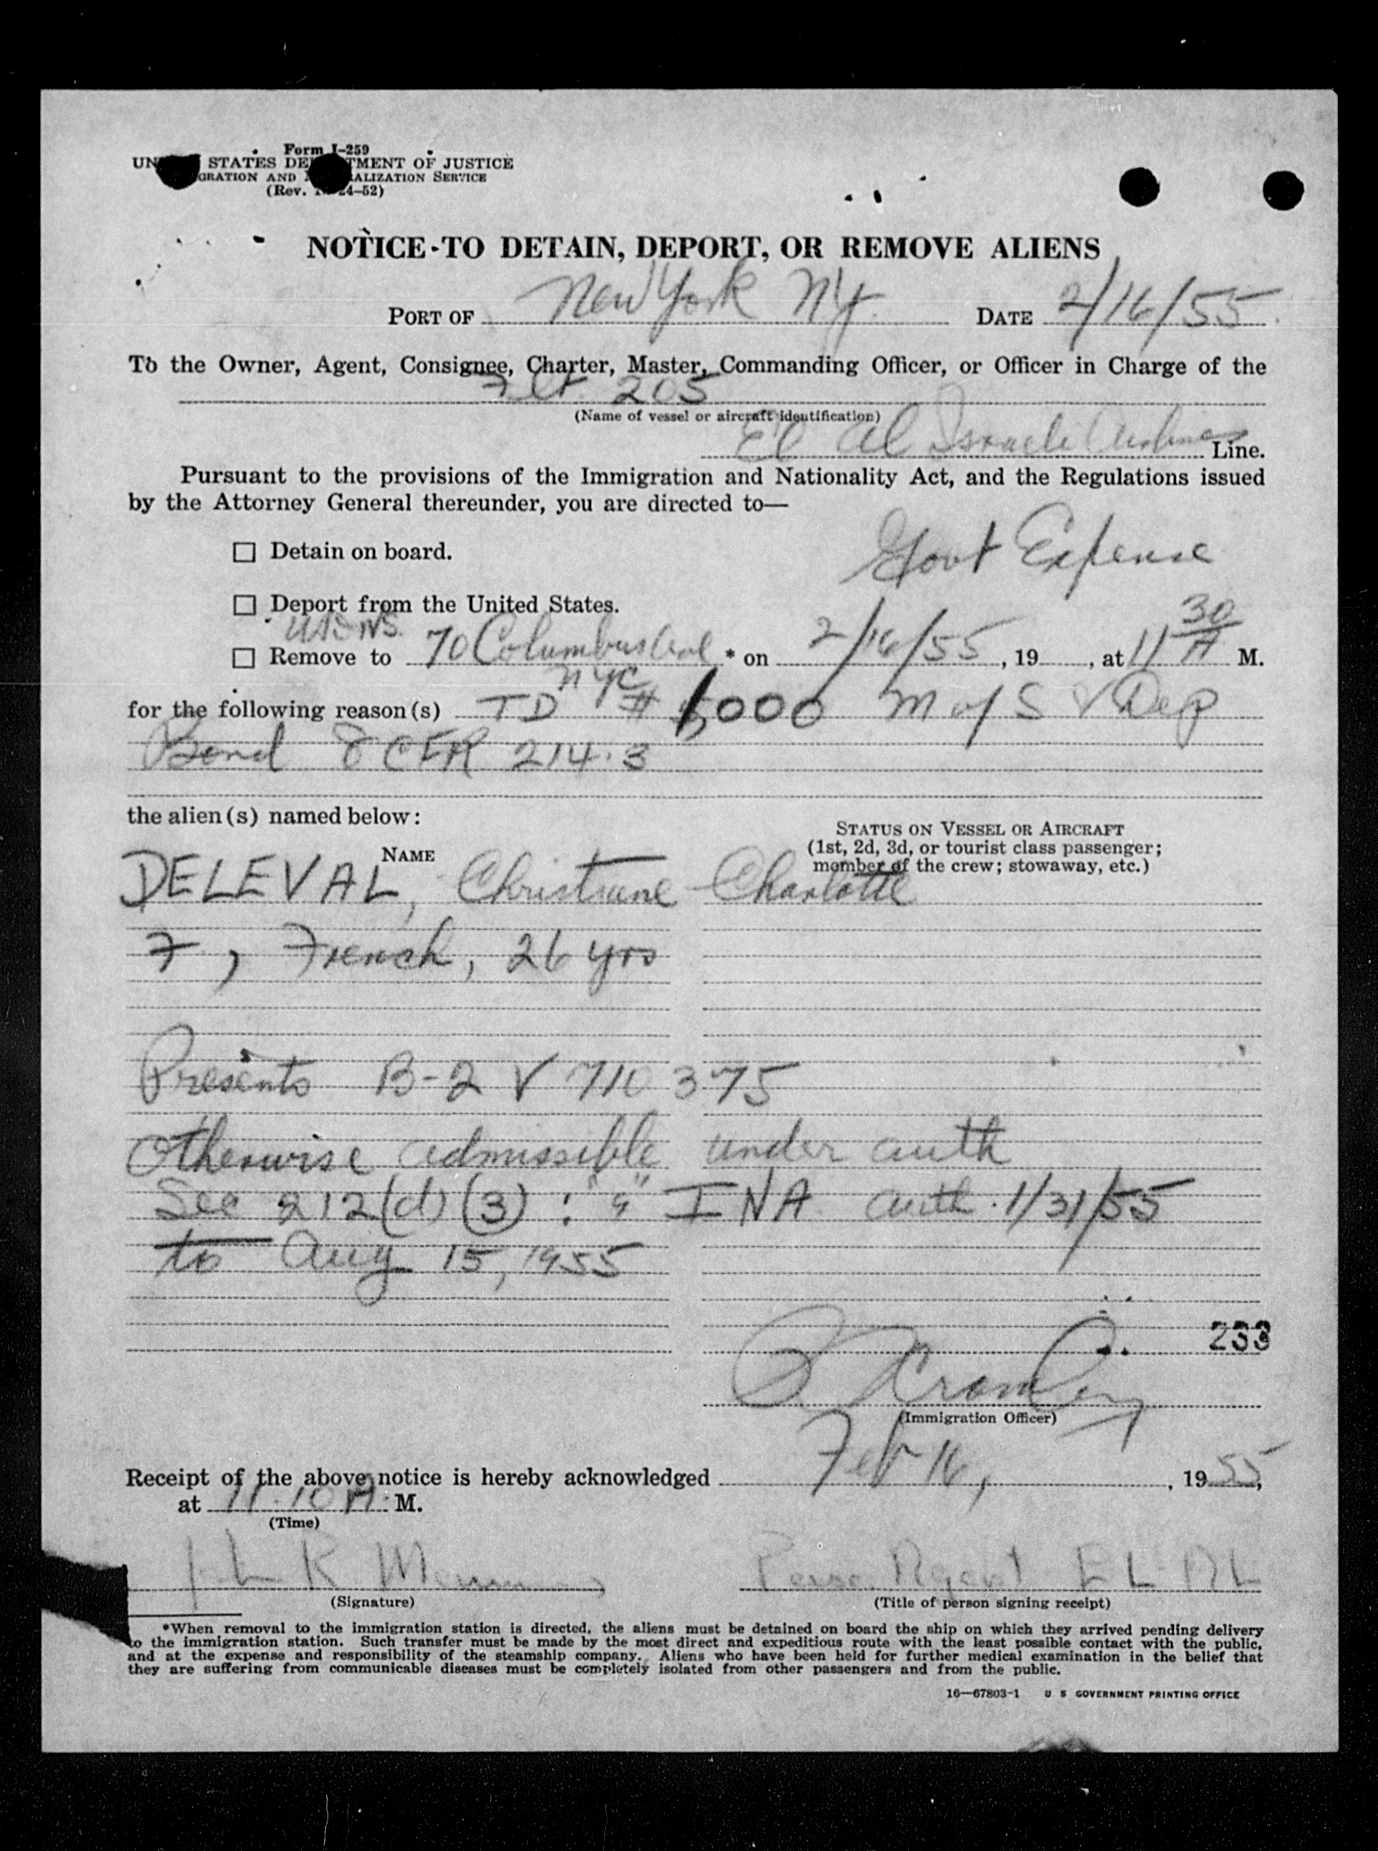 Form I-259
STATES DE MENT OF JUSTICE
(Rev. 24-52)
NOTICE TO DETAIN, DEPORT, OR REMOVE ALIENS
PORT OF New York NY. DATE 2/16/55
To the Owner, Agent, Consignee, Charter, Master, Commanding Officer, or Officer in Charge of the
Flt. 205
(Name of vessel or aircraft identification)
El Al Israeli Airlines Line.
Pursuant to the provisions of the Immigration and Nationality Act, and the Regulations issued
by the Attorney General thereunder, you are directed to—
☐ Detain on board.
Govt Expense
☐ Deport from the United States.
☐ Remove to 70 Columbus Ave * on 2/16/55, 19 , at 11 30 A M.
NYC
for the following reason(s) TD # 1,000 M of S & Dep
Bond 8 CFR 214.3
the alien(s) named below:
STATUS ON VESSEL OR AIRCRAFT
(1st, 2d, 3d, or tourist class passenger;
member of the crew; stowaway, etc.)
NAME
DELEVAL, Christiane Charlotte
F, French, 26 yrs
Presents B-2 V 710375
Otherwise admissible under auth
Sec 212(d)(3) : INA auth. 1/31/55
to Aug 15, 1955
233
(Immigration Officer)
Receipt of the above notice is hereby acknowledged Feb 16, , 1955,
at 11.10 A. M.
(Time)
EL-AL
(Signature) (Title of person signing receipt)
*When removal to the immigration station is directed, the aliens must be detained on board the ship on which they arrived pending delivery
to the immigration station. Such transfer must be made by the most direct and expeditious route with the least possible contact with the public,
and at the expense and responsibility of the steamship company. Aliens who have been held for further medical examination in the belief that
they are suffering from communicable diseases must be completely isolated from other passengers and from the public.
16—67803-1 U S GOVERNMENT PRINTING OFFICE